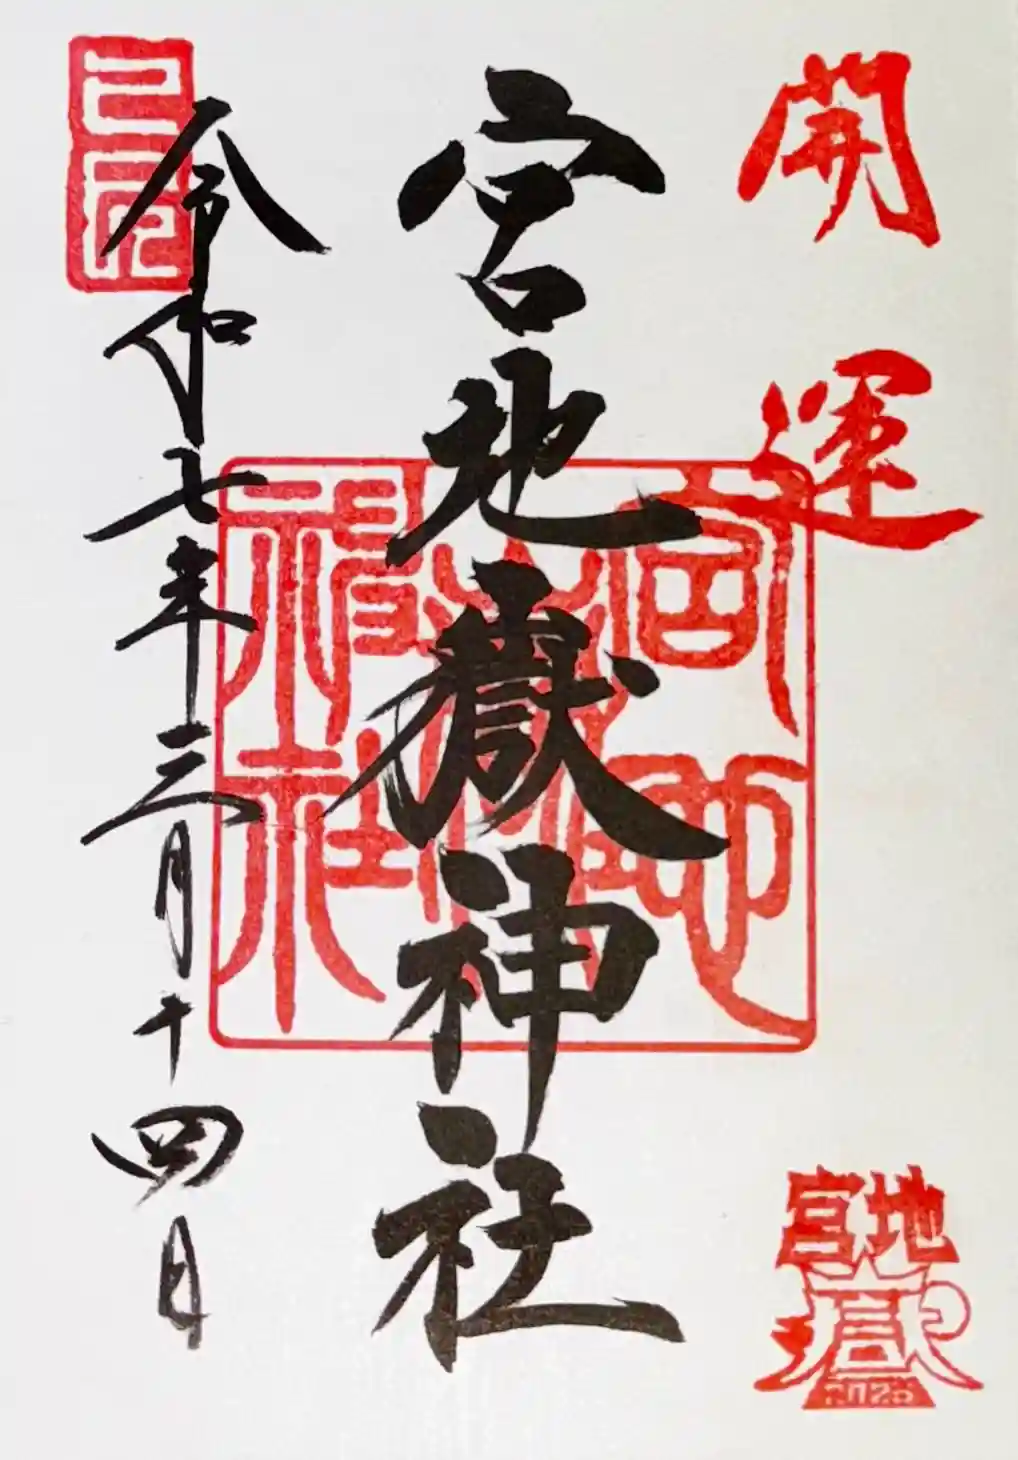 開運
宮地嶽神社
宮地嶽神社
宮地
嶽
2025
令和七年三月十四日